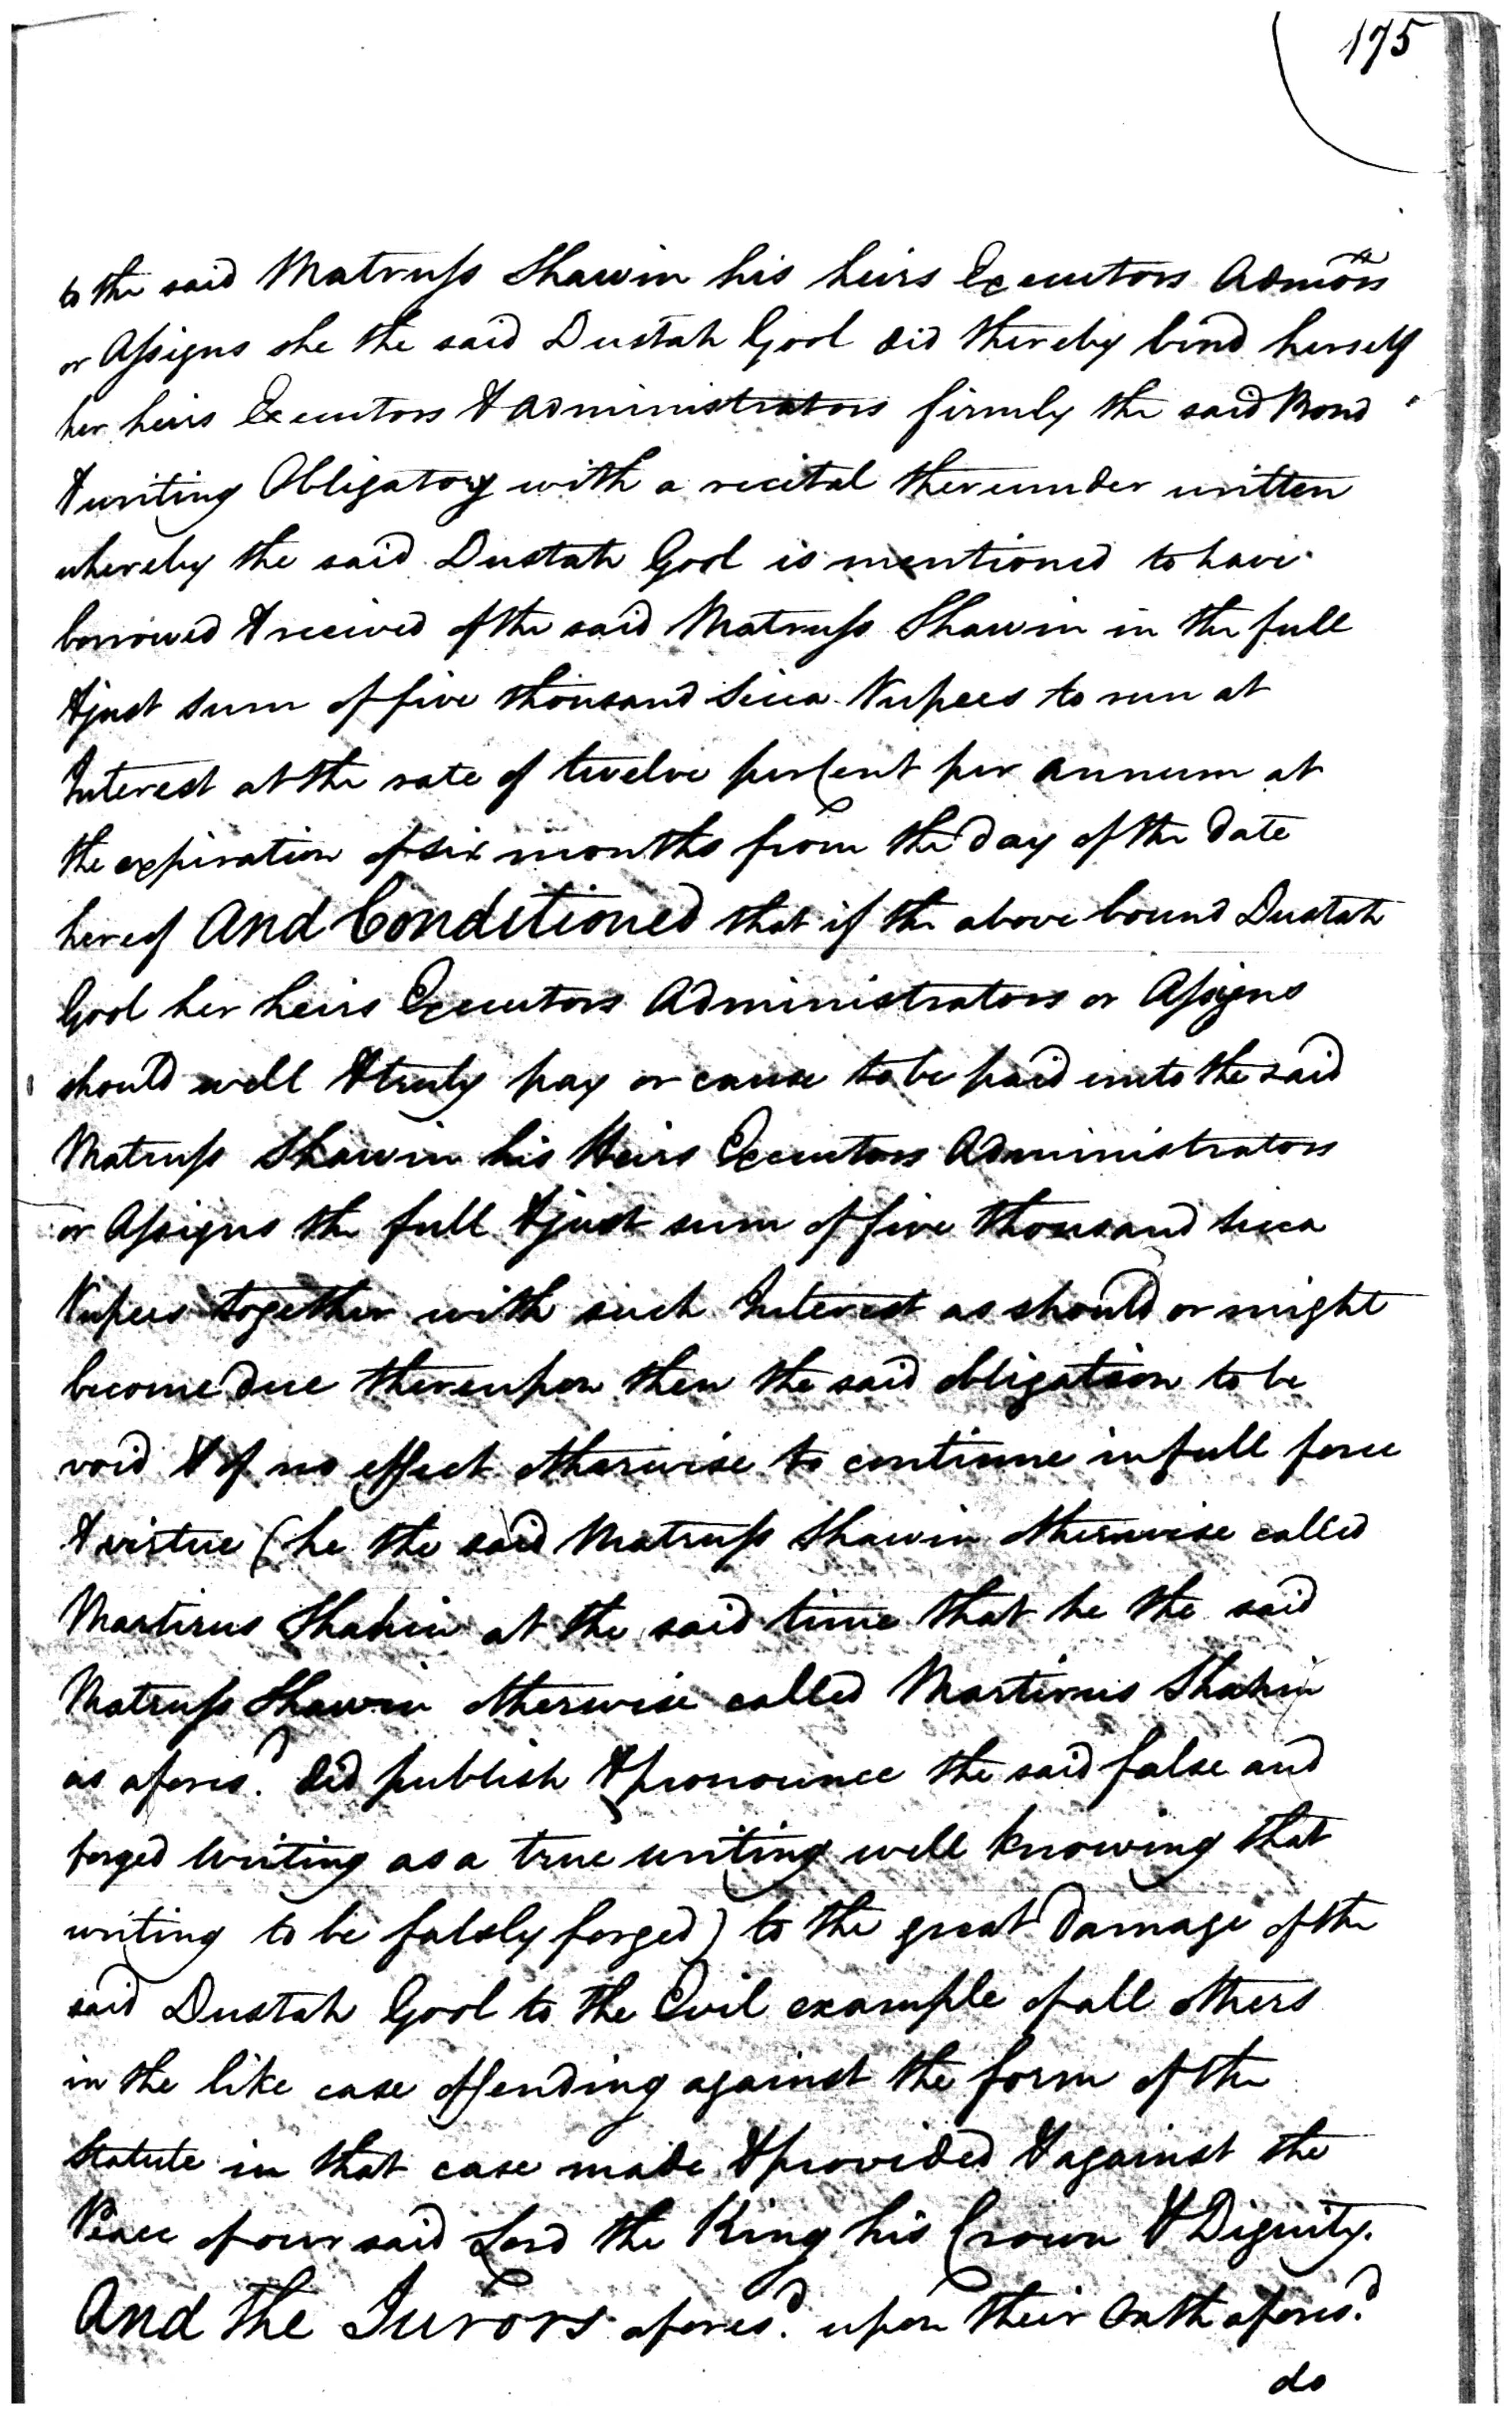 175
to the said Matruss Shawin his heirs Executors Admors
or Assigns she the said Dustah Gool did thereby bind herself
her heirs Executors & Administrators firmly the said Bond
& writing Obligatory with a recital thereunder written
whereby the said Dustah Gool is mentioned to have
borrowed & received of the said Matruss Shawin in the full
& just sum of five thousand Sicca Rupees to run at
Interest at the rate of twelve per Cent per annum at
the expiration of six months from the day of the date
hereof And Conditioned that if the above bound Dustah
Gool her heirs Executors Administrators or Assigns
should well & truly pay or cause to be paid unto the said
Matruss Shawin his Heirs Executors Administrators
or Assigns the full & just sum of five thousand Sicca
Rupees together with such Interest as should or might
become due thereupon then the said obligation to be
void & of no effect otherwise to continue in full force
& virtue (he the said Matruss Shawin otherwise called
Martirus Shahin at the said time that he the said
Matruss Shawin otherwise called Martirus Shahin
as afores.d did publish & pronounce the said false and
forged Writing as a true writing well knowing that
writing to be falsly forged) to the great Damage of the
said Dustah Gool to the Evil example of all others
in the like case offending against the form of the
Statute in that case made & provided & against the
Peace of our said Lord the King his Crown & Dignity.
And the Jurors afores.d upon their Oath afores.d
do